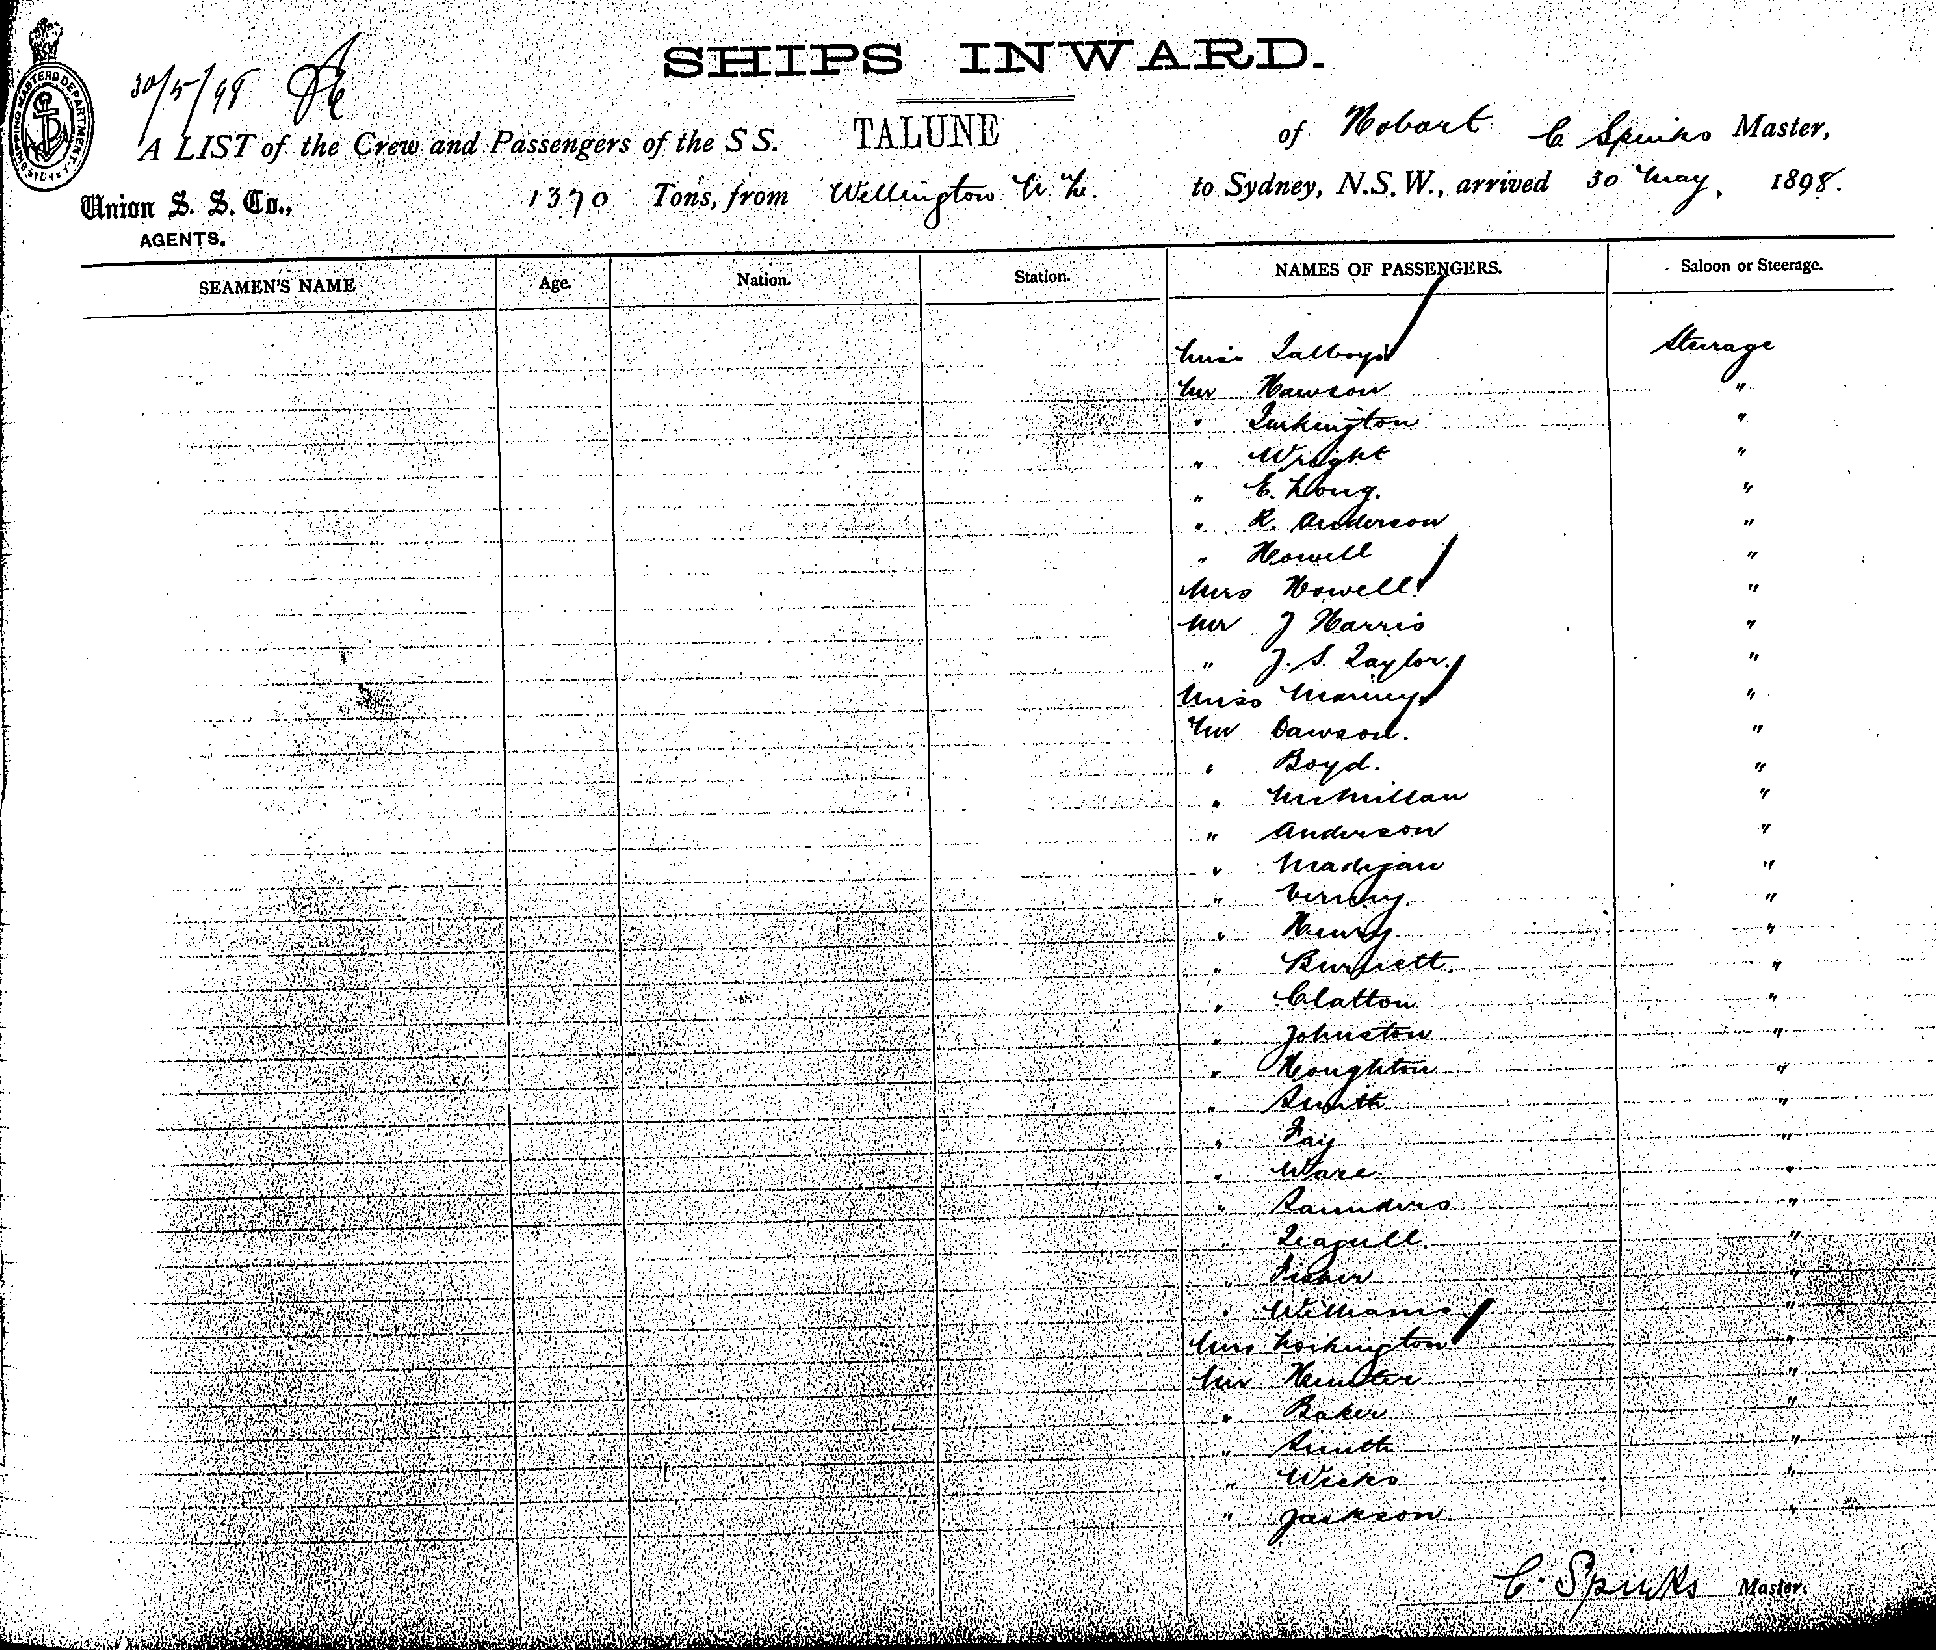 SHIPS INWARD.
30/5/98
SHIPPING MASTERS DEPARTMENT SYDNEY
A LIST of the Crew and Passengers of the S S. TALUNE of Hobart C Spinks Master,
Union S. S. Co., 1370 Tons, from Wellington N. Z. to Sydney, N.S.W., arrived 30 May, 1898.
AGENTS.
SEAMEN'S NAME Age. Nation. Station. NAMES OF PASSENGERS. Saloon or Steerage.
Miss Talboys Steerage
Mr Hawson "
" Turkington "
" Wright "
" E. Long. "
" R. Anderson "
" Howell "
Mrs Howell "
Mr J Harris "
" J. S. Taylor. "
Miss "
Mr Dawson. "
" Boyd. "
" McMillan "
" Anderson "
" Madigan "
" Verney. "
" Henry "
" Burnett. "
" Clatton "
" Johnston "
" Houghton "
" Smith "
" Fay "
" Ware "
" Saunders "
" "
" Fisher "
" Williams "
Mrs "
Mr Hunter "
" Baker "
" Smith "
" Weeks "
" Jackson "
C. Spinks Master.